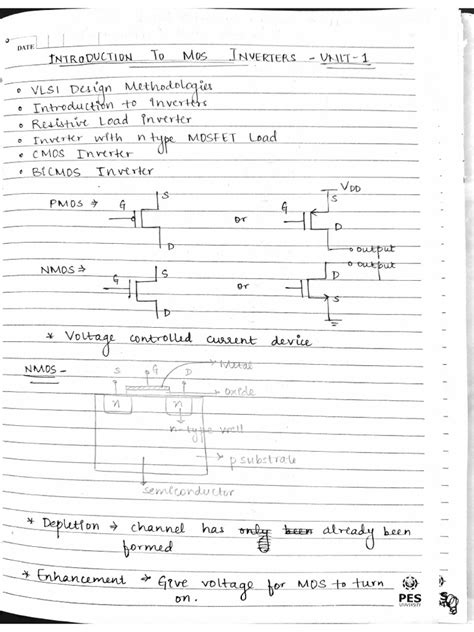 DATE
INTRODUCTION TO MOS INVERTERS - UNIT-1
• VLSI Design Methodologies
• Introduction to Inverters
• Resistive Load Inverter
• Inverter with n type MOSFET Load
• CMOS Inverter
• BICMOS Inverter
VDD
PMOS → G S D or S D
output
output
NMOS → G S D or D S
* Voltage controlled current device
NMOS - S G D Metal
oxide
n n
n-type well
p substrate
semiconductor
* Depletion → channel has only been already been
formed
* Enhancement → Give voltage for MOS to turn
on.
PES
UNIVERSITY